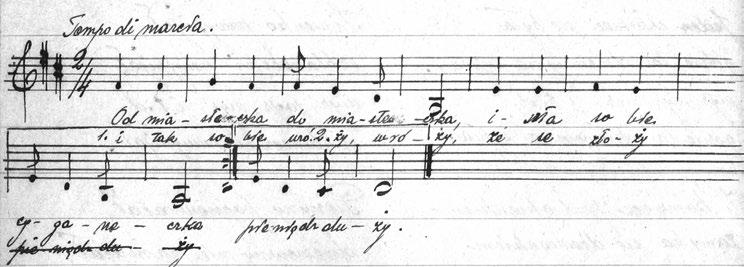 Tempo di marcia.
2/4
Od mia-ste-czka do mia-ste-czka, i-szła so-bie
1. i tak so-bie wró-ży, wró-ży, że se zło-ży
1. 2.
cy-ga-ne-czka pieniędz du-ży.
pie-niędz du-ży